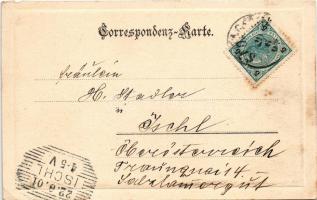 Correspondenz-Karte.
Fräulein
H. Stadler
Ischl
Oberösterreich
Traunquai 14
Salzkammergut
22.8.01
ISCHL
4-5 V